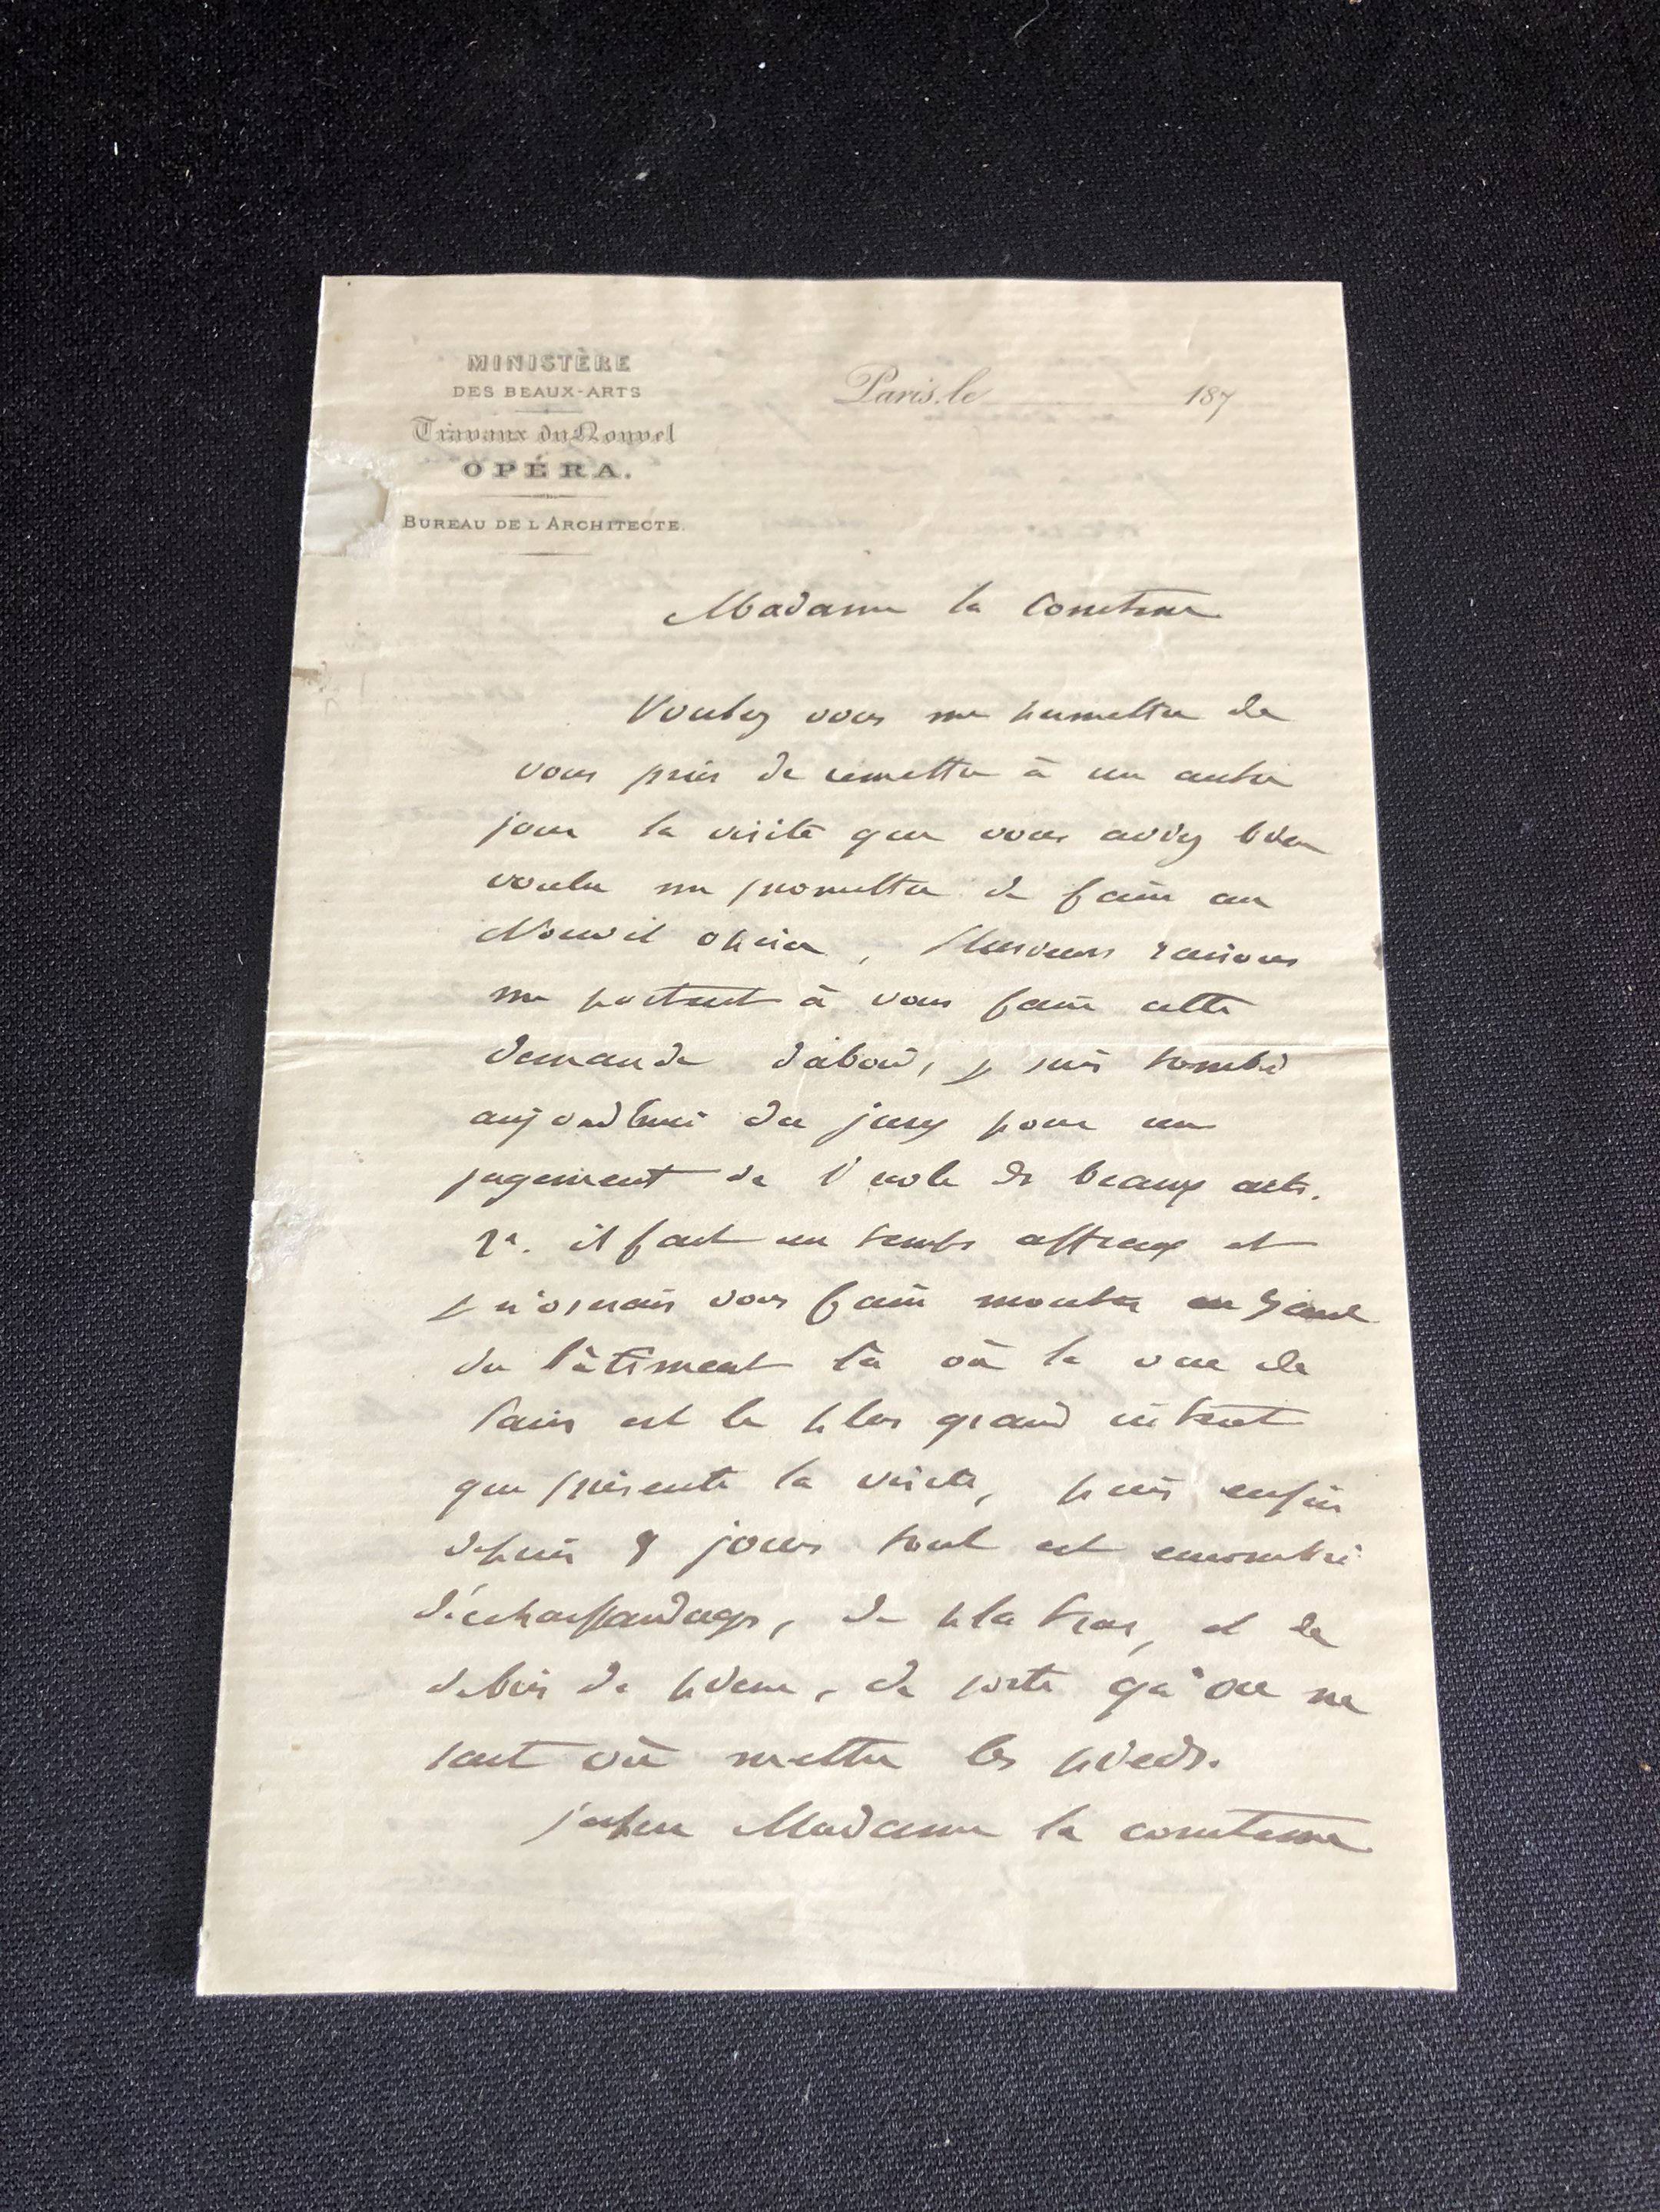 MINISTÈRE
DES BEAUX-ARTS
Travaux du Nouvel
OPÉRA.
BUREAU DE L'ARCHITECTE.
Paris, le 187
Madame la Comtesse
Voulez vous me permettre de
vous prier de remettre à un autre
jour la visite que vous aviez bien
voulu me promettre de faire au
Nouvel opéra, Plusieurs raisons
me portent à vous faire cette
demande d'abord, je suis tombé
aujourdhui du jury pour un
jugement de l'école des beaux arts.
2°. il fait un temps affreux et
je n'oserais vous faire monter en haut
du bâtiment là où la vue de
Paris est le plus grand intérêt
que présente la visite, puis enfin
depuis 8 jours tout est encombré
d'échaffaudages, de platras, et de
debris de pierre, de sorte qu'on ne
sait où mettre les pieds.
j'espère Madame la comtesse